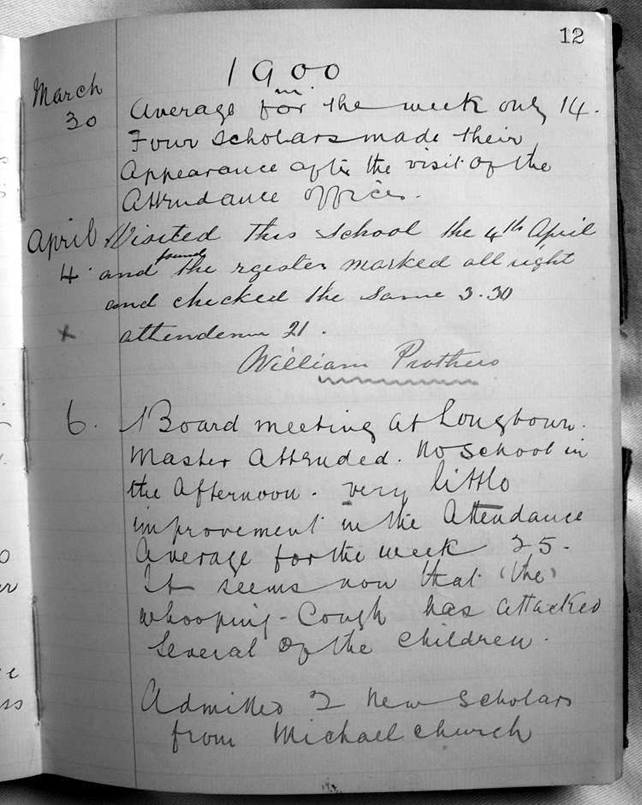 12
1900
March Average for the week only 14.
30 Four scholars made their
Appearance after the visit of the
Attendance officer.
April Visited this School the 4th April
4 and found the rgester marked all right
and checked the same 3.30
x attendence 21.
William Prothero
6. Board meeting at Longtown.
Master Attended. No school in
the Afternoon. very little
improvement in the Attendance
Average for the week 25.
It seems now that (the)
whooping-Cough has attacked
Several of the children.
Admitted 2 New Scholars
from Michaelchurch